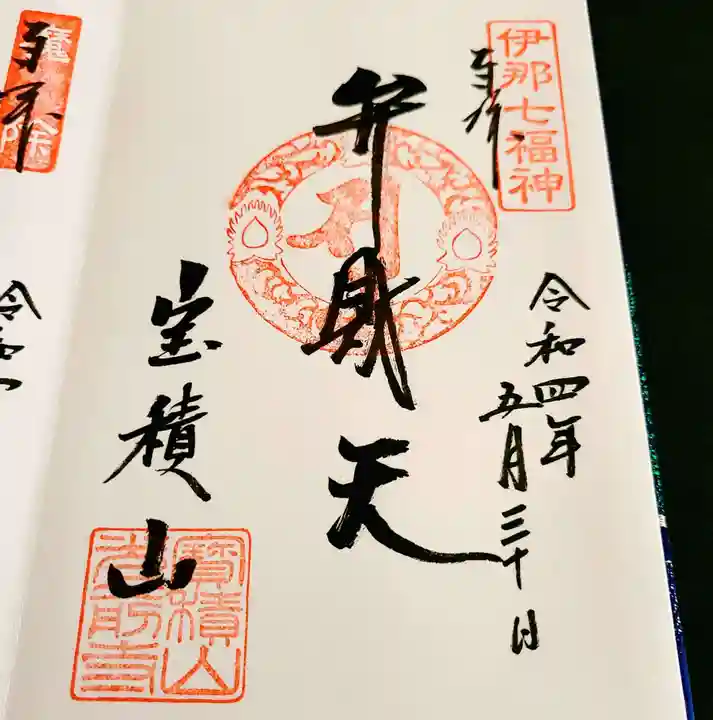 伊那七福神
奉拝
令和四年
五月三十日
弁財天
宝積山
寳積山
光前寺
奉拝
魔除
令和